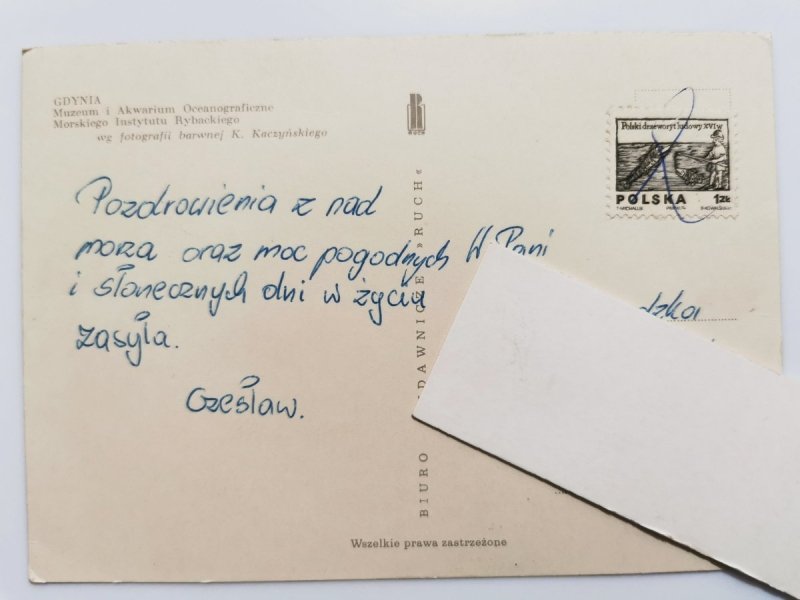 GDYNIA
Muzeum i Akwarium Oceanograficzne
Morskiego Instytutu Rybackiego
wg fotografii barwnej K. Kaczyńskiego
Pozdrowienia z nad
morza oraz moc pogodnych
i słonecznych dni w życiu
zasyła.
Czesław.
RUCH
BIURO
DAWNICZE »RUCH«
Wszelkie prawa zastrzeżone
Polski drzeworyt ludowy XVI w
POLSKA 1zł
W Pani
dzka